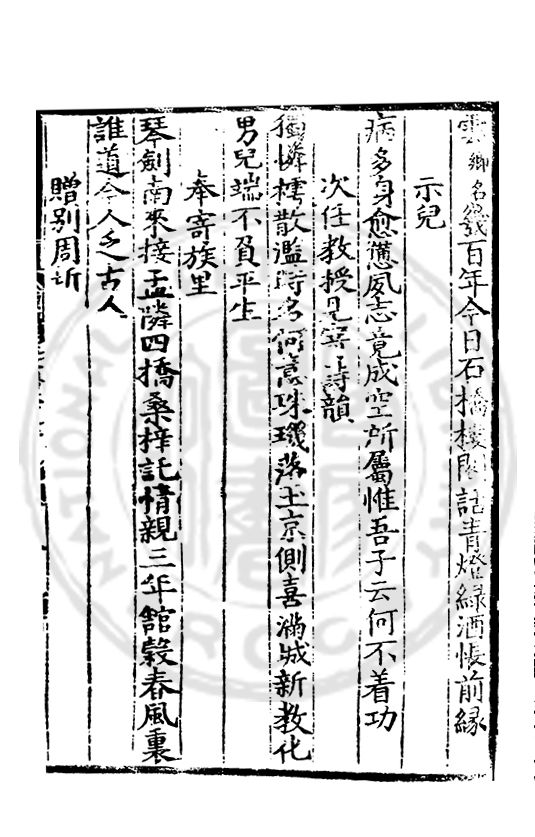 雲卿名䇿百年今日石橋樓閣話青燈綠酒悵前緣
示兒
病多身愈憊夙志竟成空所屬惟吾子云何不着功
次任教授見寄詩韻
獨憐樗散濫時名何意珠璣落玉京側喜滿城新教化
男兒端不負平生
奉寄族里
琴劍南來接孟隣四橋桑梓託情親三年舘穀春風裏
誰道今人乏古人
贈别周䜣